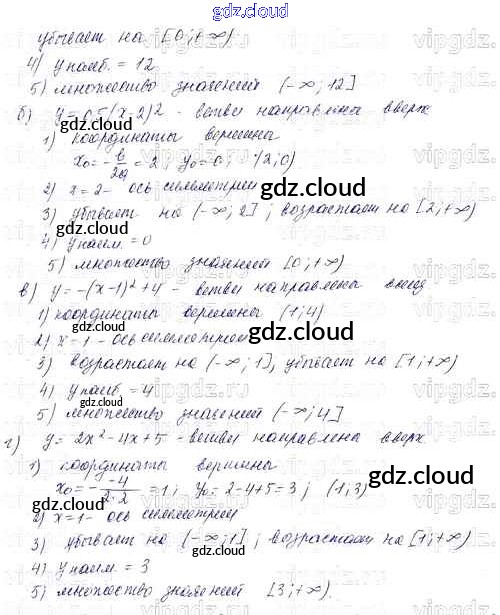 gdz.cloud
убывает на [0;+∞)
4) y наиб. = 12
5) множество значений (-∞; 12]
б) y = 0,5(x-2)² - ветви направлены вверх
gdz.cloud
1) координаты вершины
x₀ = -b/2a = 2; y₀ = 0; (2;0)
2) x = 2 - ось симметрии
gdz.cloud
3) убывает на (-∞; 2]; возрастает на [2;+∞)
4) y наим. = 0
5) множество значений [0;+∞)
в) y = -(x-1)² + 4 - ветви направлены вниз
1) координаты вершины (1;4)
2) x = 1 - ось симметрии
gdz.cloud
gdz.cloud
3) возрастает на (-∞; 1], убывает на [1;+∞)
4) y наиб. = 4
5) множество значений (-∞; 4]
г) y = 2x² - 4x + 5 - ветви направлены вверх
1) координаты вершины
gdz.cloud
x₀ = - -4/2·2 = 1; y₀ = 2-4+5 = 3; (1;3)
gdz.cloud
2) x = 1 - ось симметрии
3) убывает на (-∞; 1]; возрастает на [1;+∞)
4) y наим. = 3
5) множество значений [3;+∞).
gdz.cloud